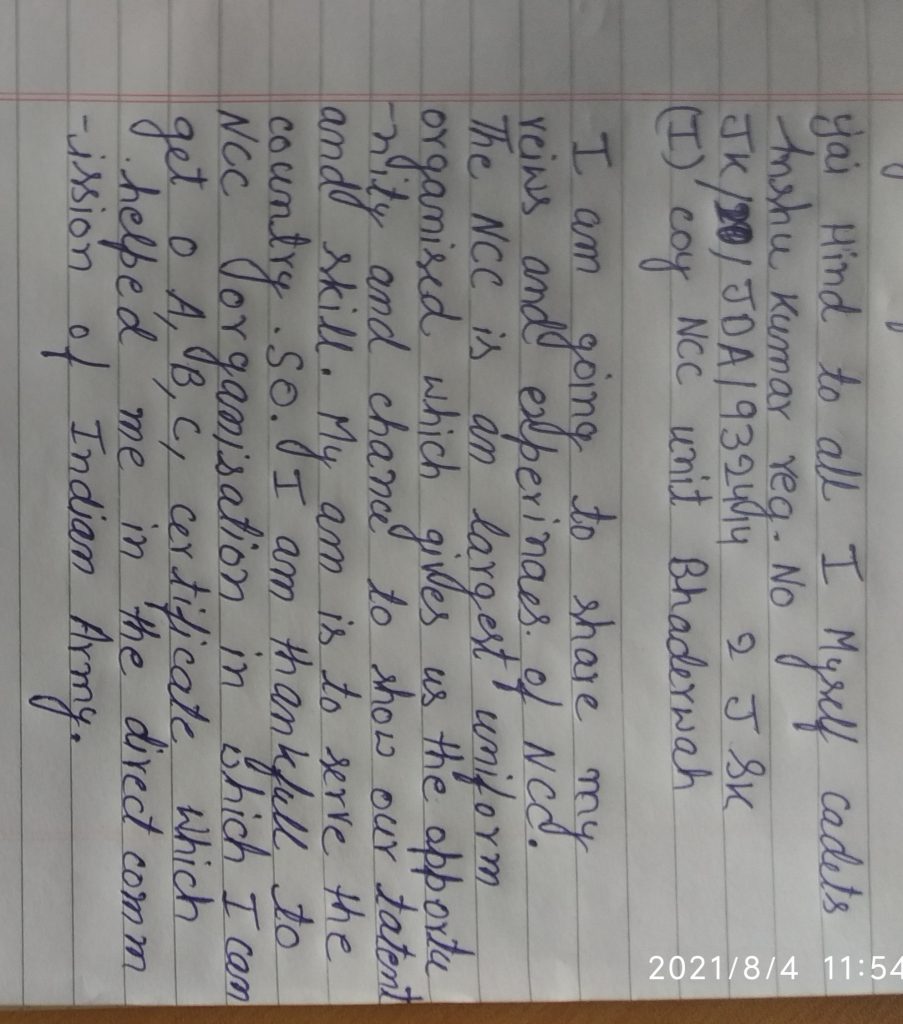 Jai Hind to all I Myself cadets
Anshu Kumar reg. No
JK/20/JDA/932414 2 J &K
(I) coy NCC unit Bhaderwah
I am going to share my
reiws and experinaes of NCC.
The NCC is an largest uniform
organised which gives us the opportu
-nity and chance to show our tatent
and skill. My am is to serve the
country. SO. I am thankfull to
NCC organisation in which I can
get o A, B, C, certificate which
helped me in the direct comm
-ission of Indian Army.
2021/8/4 11:54